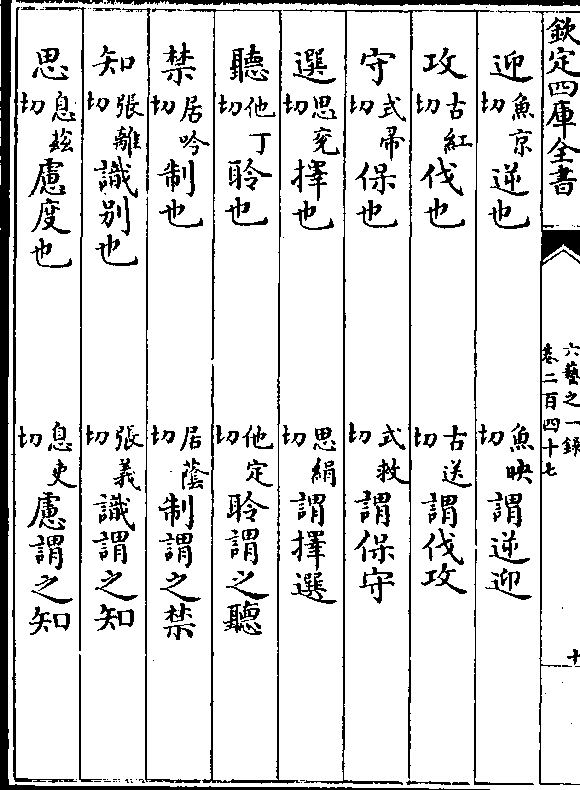 欽定四庫全書
六藝之一錄
卷二百四十七
十
迎魚京切逆也 魚映切謂逆迎
攻古紅切伐也 古送切謂伐攻
守式帚切保也 式救切謂保守
選思兖切擇也 思絹切謂擇選
聽他丁切聆也 他定切聆謂之聽
禁居吟切制也 居蔭切制謂之禁
知張離切識別也 張義切識謂之知
思息兹切慮度也 息吏切慮謂之知